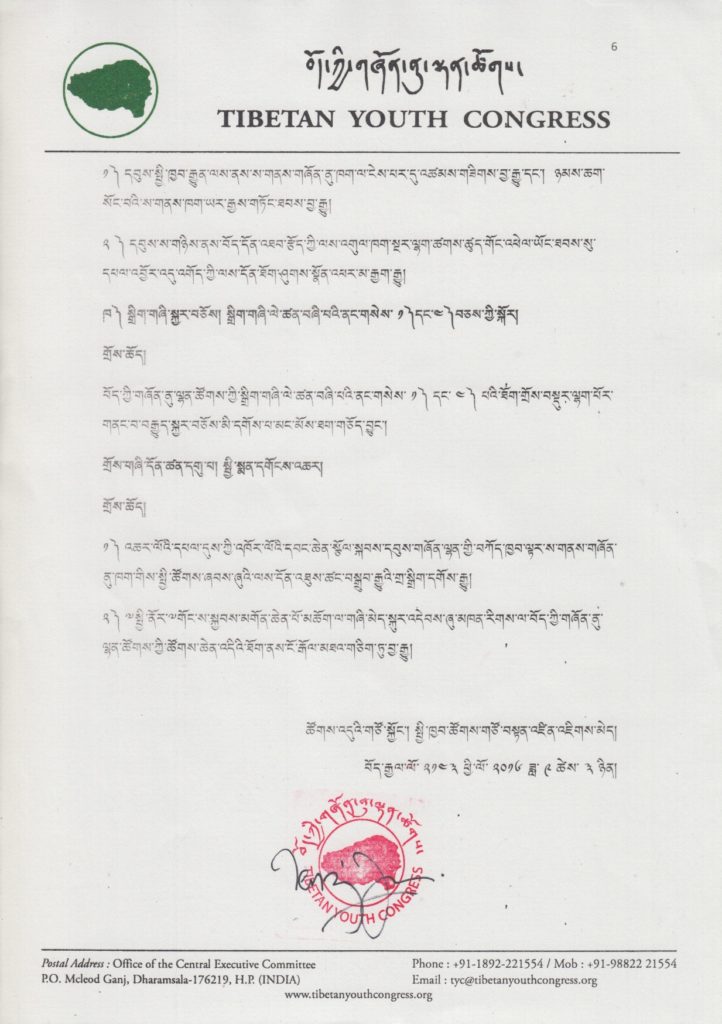 6
བོད་ཀྱི་གཞོན་ནུ་ལྷན་ཚོགས།
TIBETAN YOUTH CONGRESS
༡༽ དབུས་སྤྱི་ཁྱབ་རྒྱུན་ལས་ནས་ས་གནས་གཞོན་ནུ་ཁག་ལ་ངེས་པར་དུ་འཚམས་གཟིགས་བྱ་རྒྱུ་དང་། ཉམས་ཆག་
སོང་བའི་ས་གནས་ཁག་ཡར་རྒྱས་གཏོང་ཐབས་བྱ་རྒྱུ།
༢ ༽ དབུས་ས་གཉིས་ནས་བོད་དོན་འཐབ་རྩོད་ཀྱི་ལས་འགུལ་ཁག་སྔར་ལྷག་ཚགས་ཚུད་གོང་འཕེལ་ཡོང་ཐབས་སུ་
དཔལ་འབྱོར་འདུ་འགོད་ཀྱི་ལས་དོན་ཐོག་ཤུགས་སྣོན་འཕར་མ་རྒྱག་རྒྱུ།
ཁ༽ སྒྲིག་གཞི་སྐྱར་བཅོས། སྒྲིག་གཞི་ལེ་ཚན་བཞི་པའི་ནང་གསེས་ ༡༽དང་༤༽བཅས་ཀྱི་སྐོར།
གྲོས་ཆོད།
བོད་ཀྱི་གཞོན་ནུ་ལྷན་ཚོགས་ཀྱི་སྒྲིག་གཞི་ལེ་ཚན་བཞི་པའི་ནང་གསེས་ ༡༽ དང་ ༤༽ པའི་ཐོག་གྲོས་བསྡུར་ལྷག་པོར་
གནང་བ་བརྒྱུད་སྐྱར་བཅོས་མི་དགོས་པ་མང་མོས་ཐག་གཅོད་བྱུང་།
གྲོས་གཞི་དོན་ཚན་དགུ་པ། སྤྱི་སྨན་དགོངས་འཆར།
གྲོས་ཆོད།
༡༽ འཆར་ལོའི་དཔལ་དུས་ཀྱི་འཁོར་ལོའི་དབང་ཆེན་སྩོལ་སྐབས་དབུས་གཞོན་ལྷན་གྱི་བཀོད་ཁྱབ་ལྟར་ས་གནས་གཞོན་
ནུ་ཁག་གིས་སྤྱི་ཚོགས་ཞབས་ཞུའི་ལས་དོན་འཐུས་ཚང་བསྒྲུབ་རྒྱུའི་གྲ་སྒྲིག་དགོས་རྒྱུ།
༢༽ ༸སྤྱི་ནོར་༸གོང་ས་སྐྱབས་མགོན་ཆེན་པོ་མཆོག་ལ་གཞི་མེད་སྐུར་འདེབས་ཞུ་མཁན་རིགས་ལ་བོད་ཀྱི་གཞོན་ནུ་
ལྷན་ཚོགས་ཀྱི་ཚོགས་ཆེན་འདིའི་ཐོག་ནས་ངོ་རྒོལ་མཐའ་གཅིག་ཏུ་བྱ་རྒྱུ།
ཚོགས་འདུའི་གཙོ་སྐྱོང་། སྤྱི་ཁྱབ་ཚོགས་གཙོ་བསྟན་འཛིན་འཇིགས་མེད།
བོད་རྒྱལ་ལོ་ ༢༡༤༣ ཕྱི་ལོ་ ༢༠༡༦ ཟླ་ ༩ ཚེས་ ༣ ཉིན།
བོད་ཀྱི་གཞོན་ནུ་ལྷན་ཚོགས།
TIBETAN YOUTH CONGRESS
Postal Address : Office of the Central Executive Committee
P.O. Mcleod Ganj, Dharamsala-176219, H.P. (INDIA)
Phone : +91-1892-221554 / Mob : +91-98822 21554
Email : tyc@tibetanyouthcongress.org
www.tibetanyouthcongress.org